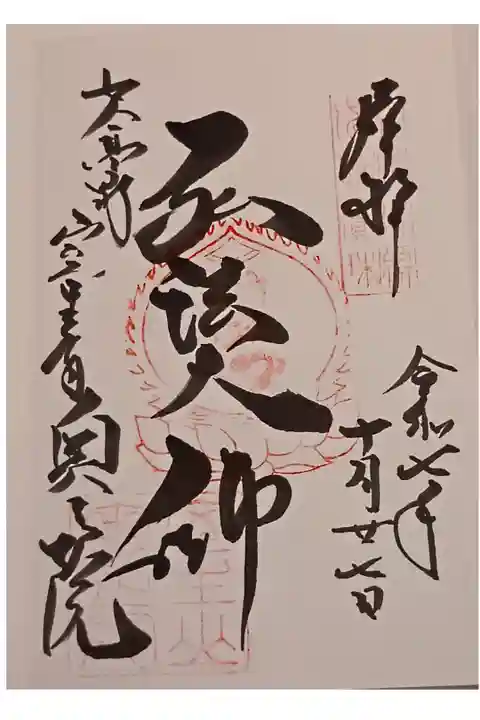 奉拝
令和七年
十月廿七日
弘法大師
女人高野
室生寺奥之院